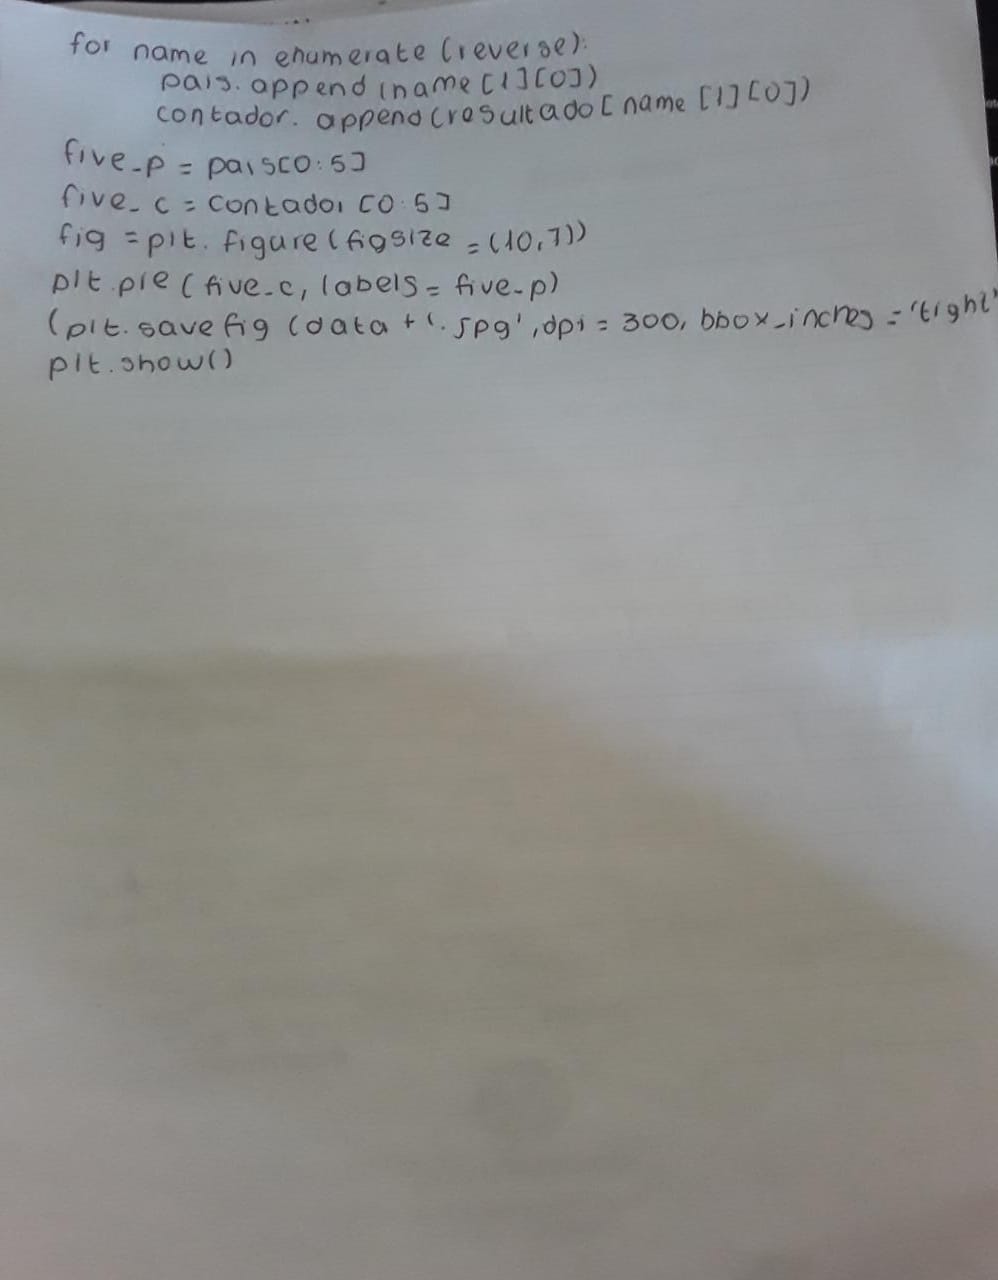 for name in enumerate (reverse):
pais.append (name [1][0])
contador. append (resultado [ name [1] [0])
five_p = pais[0:5]
five_c = contador [0:5]
fig = plt. figure (figsize = (10,7))
plt.pie (five_c, labels = five_p)
(plt. savefig (data + '.jpg', dpi = 300, bbox_inches = 'tight'
plt.show()